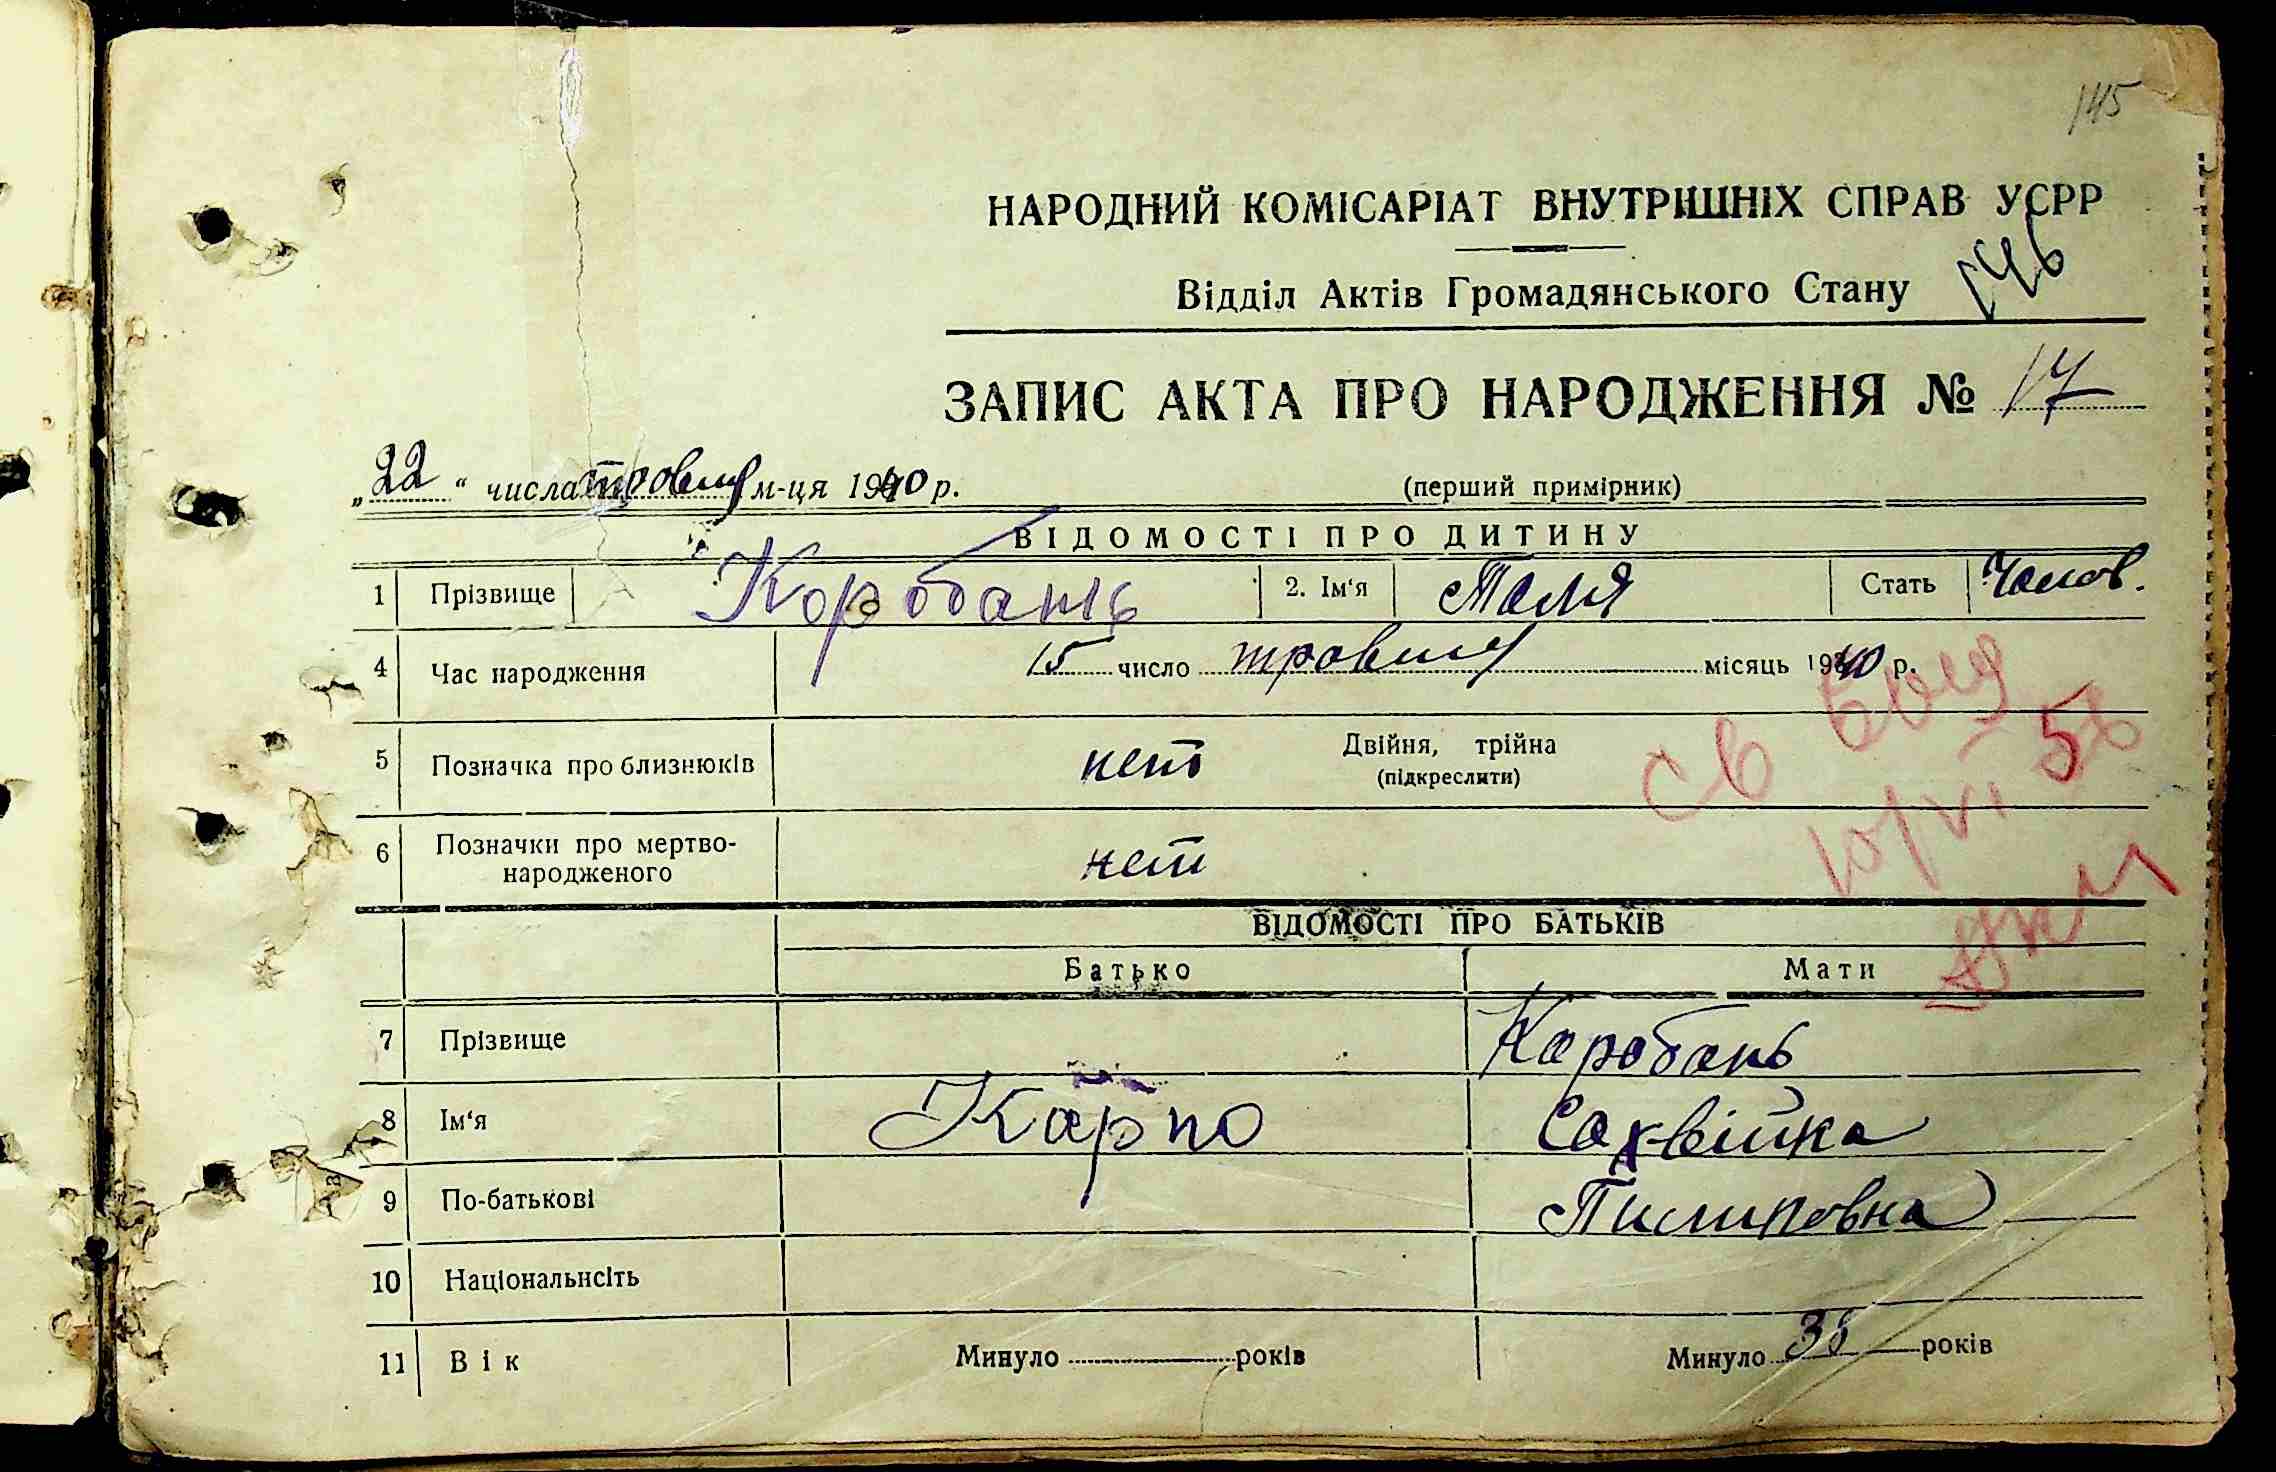 145
НАРОДНИЙ КОМІСАРІАТ ВНУТРІШНІХ СПРАВ УСРР
146
Відділ Актів Громадянського Стану
ЗАПИС АКТА ПРО НАРОДЖЕННЯ № 17
„22“ числа травня м-ця 1940 р. (перший примірник)
ВІДОМОСТІ ПРО ДИТИНУ
1 Прізвище Коробань 2. Ім‘я Толя Стать Чолов.
4 Час народження 15 число травня місяць 1940 р.
5 Позначка про близнюків нет Двійня, трійна
(підкреслити)
6 Позначки про мертво-
народженого нет
10/VI 58
ВІДОМОСТІ ПРО БАТЬКІВ
Батько Мати
7 Прізвище Каробань
8 Ім‘я Карпо Сахвійка
9 По-батькові Пилиповна
10 Національнсіть
11 Вік Минуло років Минуло 38 років